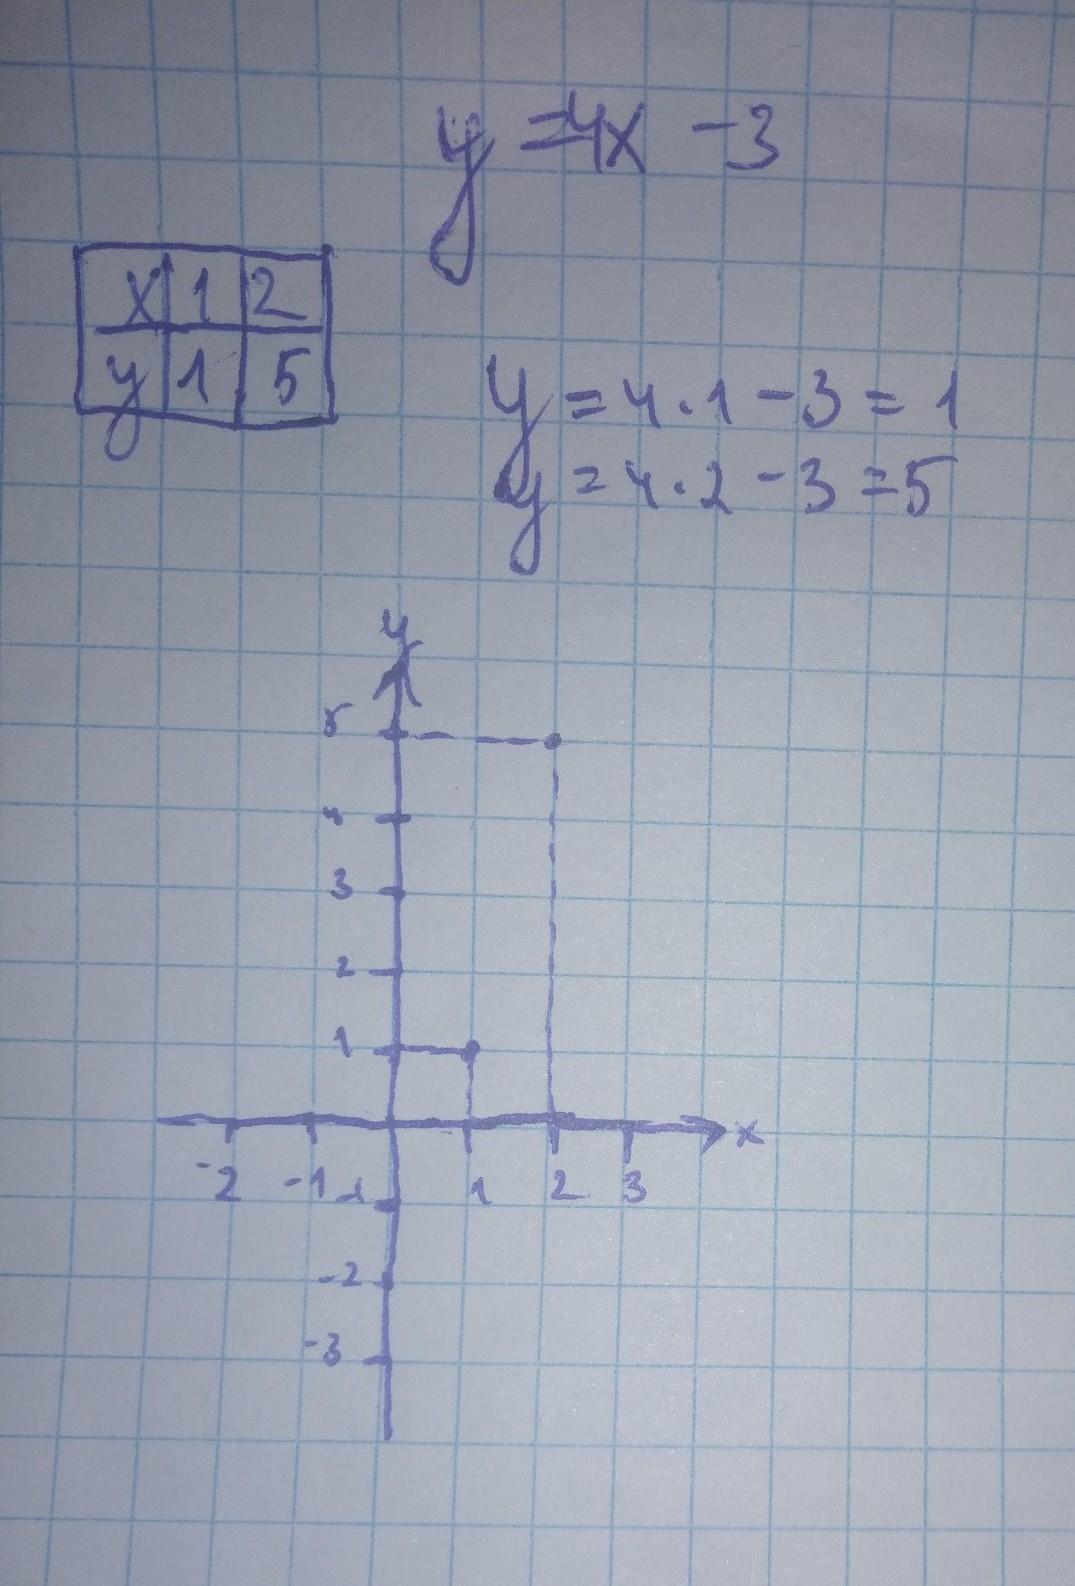 y = 4x - 3
x 1 2
y 1 5
y = 4 · 1 - 3 = 1
y = 4 · 2 - 3 = 5
y
5
4
3
2
1
x
-2 -1 1 2 3
-1
-2
-3